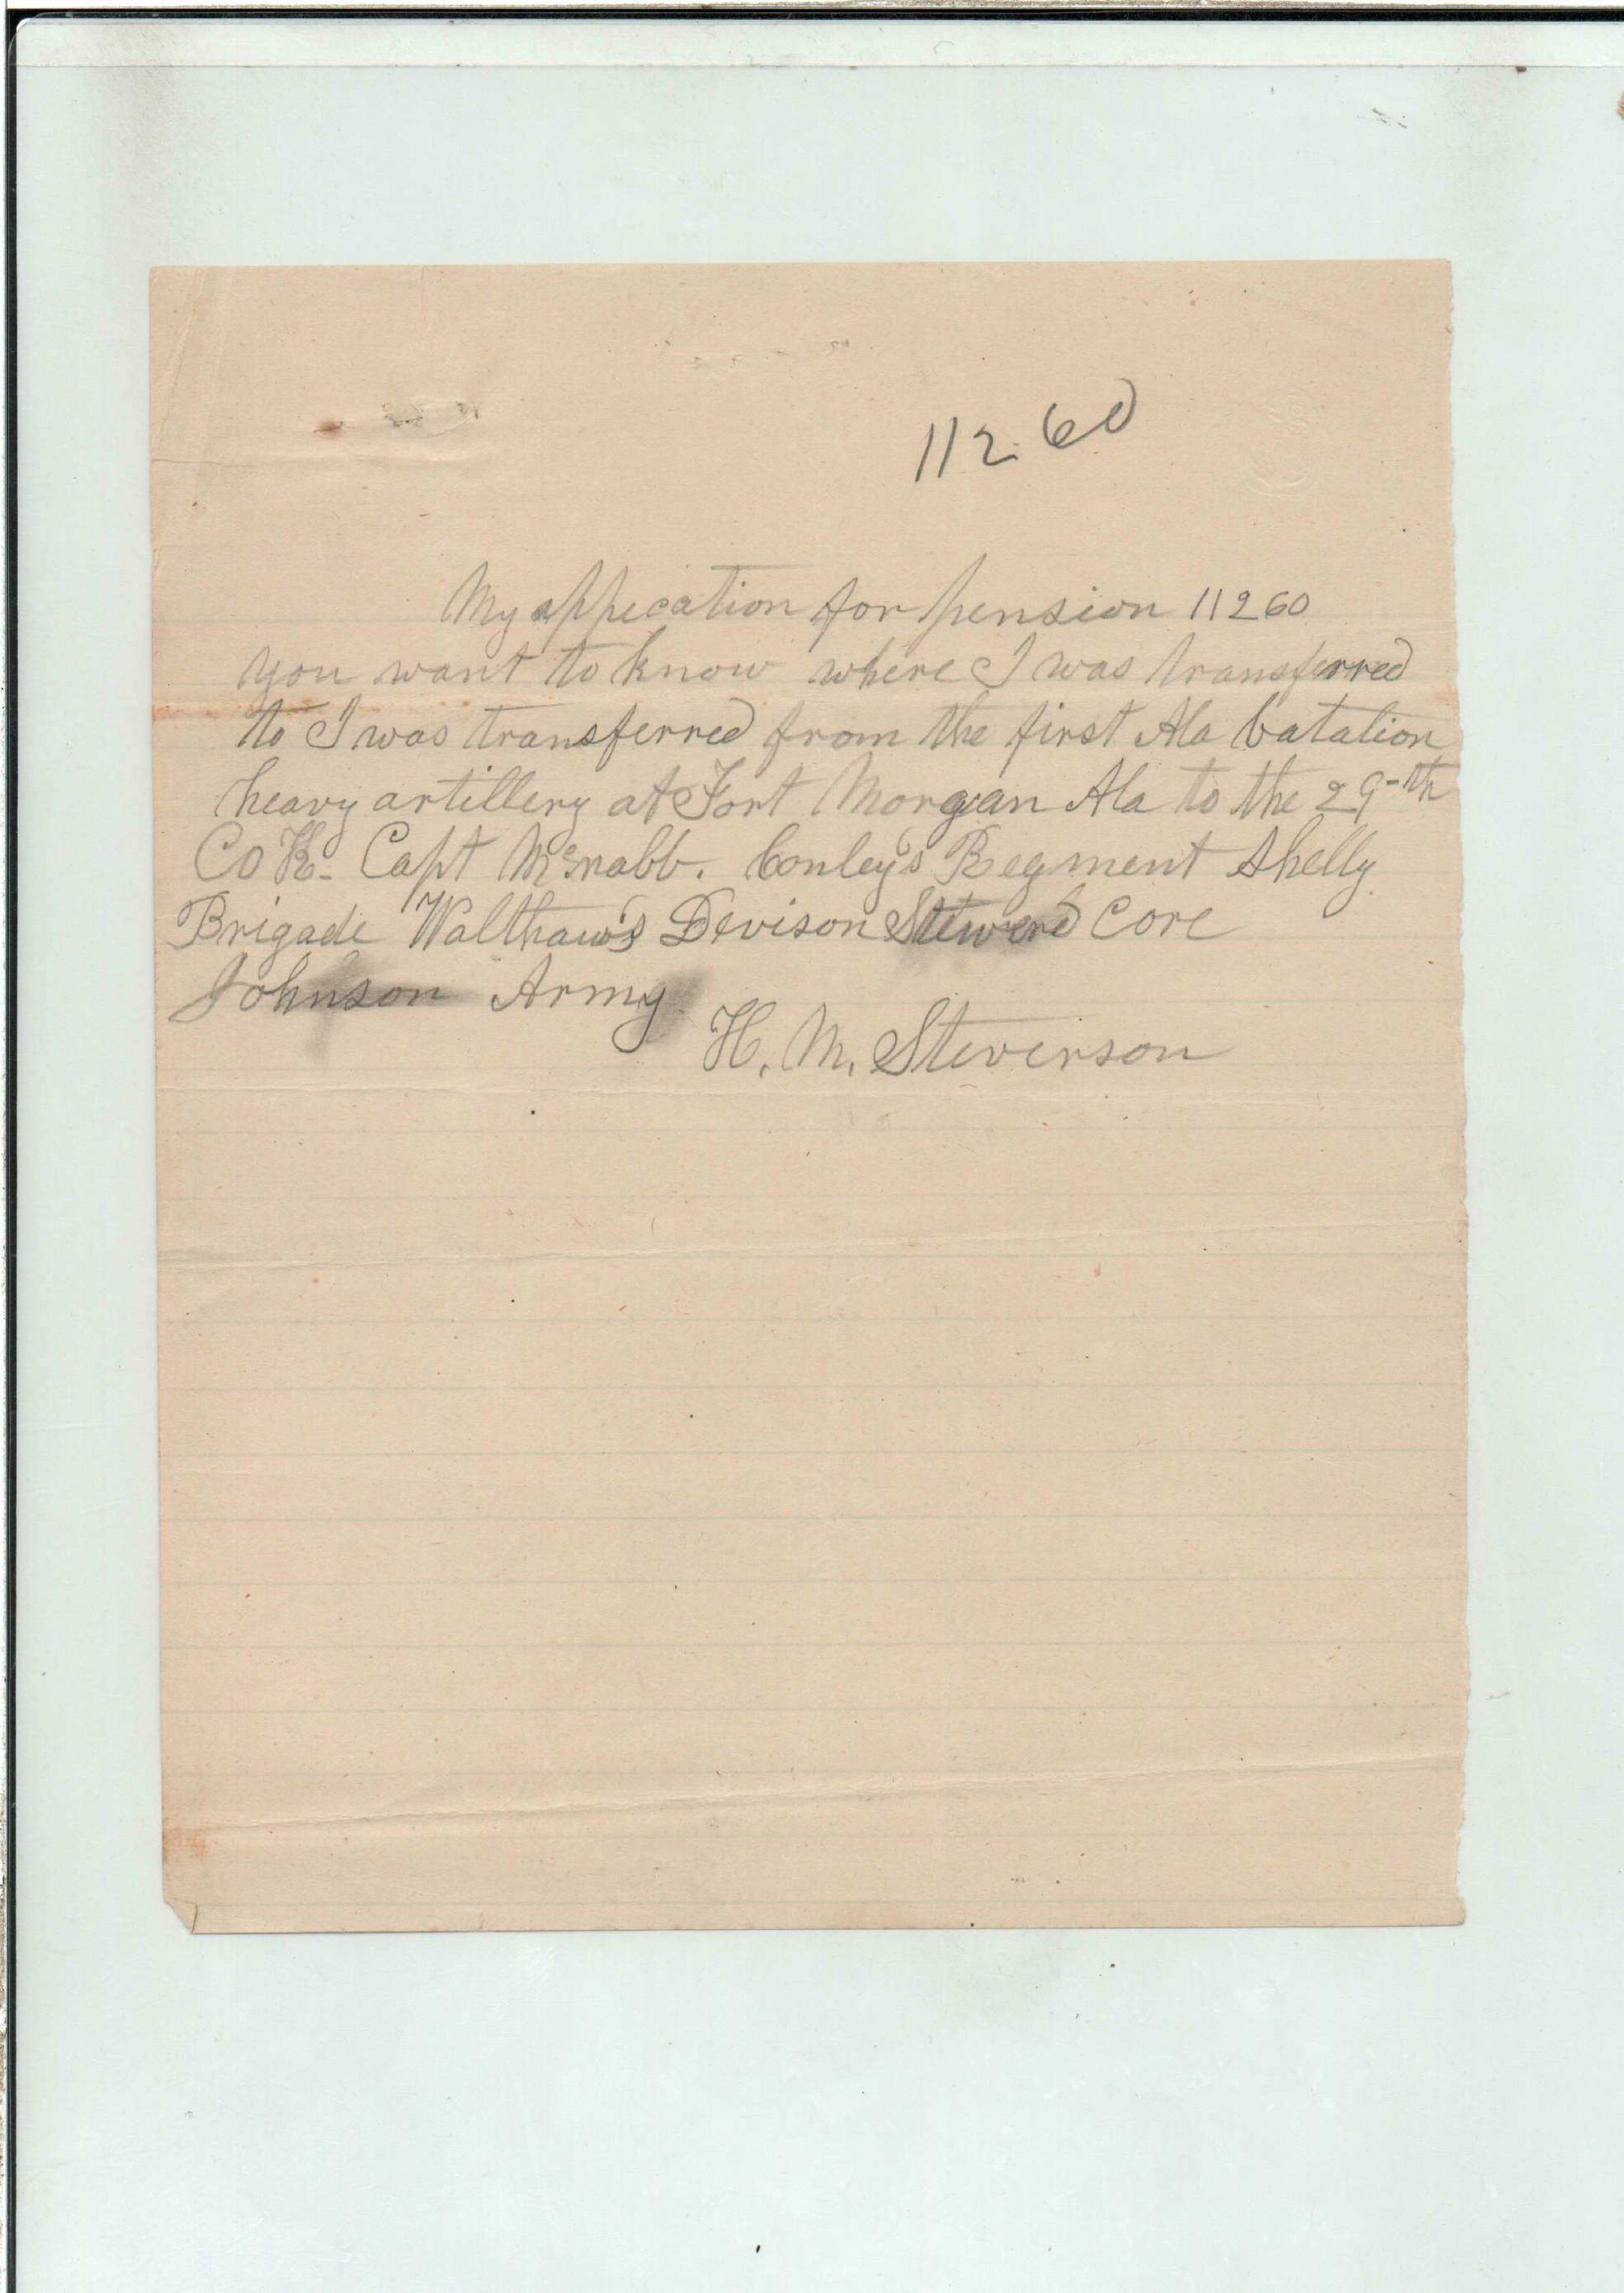 11260
My appecation for pension 11260
you want to know where I was transferred
to I was transferred from the first Ala batalion
heavy artillery at Fort Morgan Ala to the 29-th
Co K- Capt Mcnabb. Conley's Regment Shelly
Brigade Walthaw's Devison Steward Core
Johnson Army
H. M. Steverson